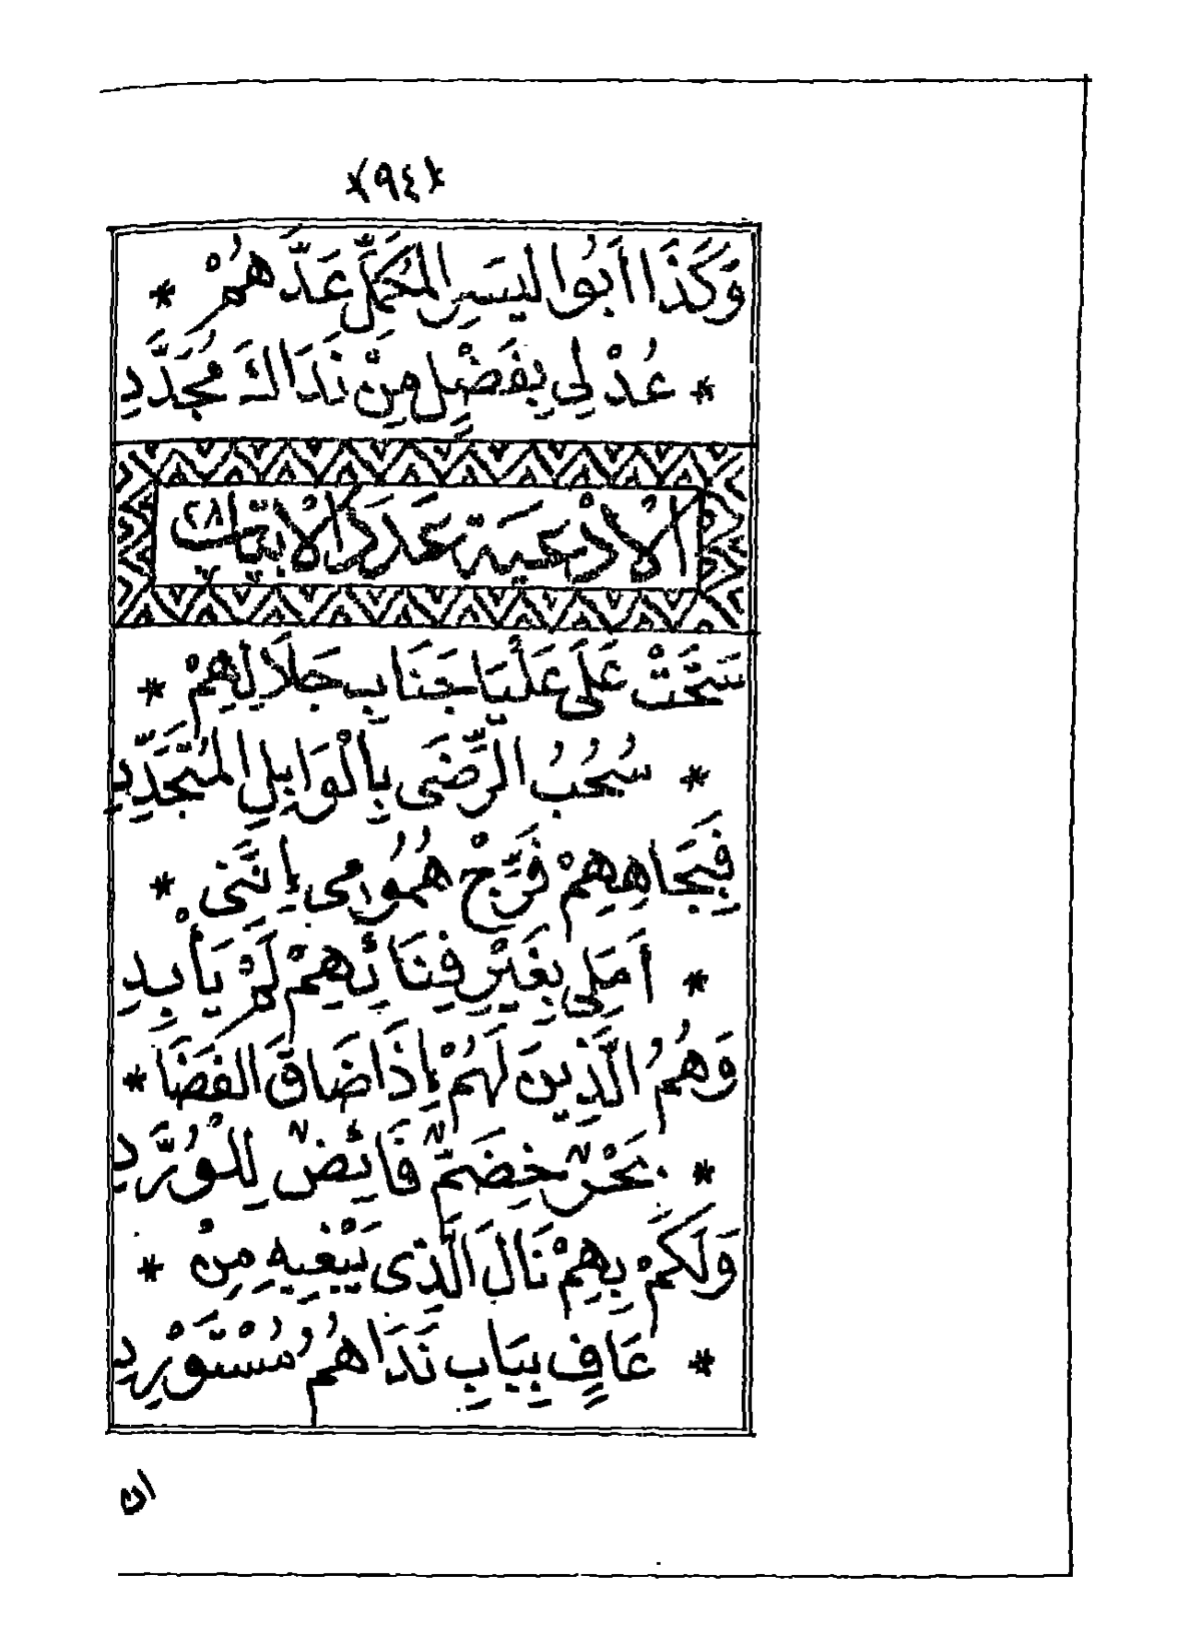 *(٩٤)*
وَكَذَا أَبُوا ليَسَرِ المُكَمَّلِ عَدَّهُمْ *
* عُدْ لِي بِفَضْلٍ مِنْ نَدَاكَ مُجَدَّدِ
الْأَدْعِيَة عَدَدُ الْأَبْيَات ٢٨
سَحَّتْ عَلَى عَلْيَا جَنَابِ جَلَالِهِمْ *
* سُحُبُ الرِّضَى بِالْوَابِلِ المُتَجَدِّدِ
فَبِجَاهِهِمْ فَرِّجْ هُمُومِى إِنَّنِى *
* أَمَلِى بِغَيْرِ فِنَائِهِمْ لَمْ يَأْبِدِ
وَهُمُ الَّذِينَ لَهُمْ إِذَا ضَاقَ الفَضَا *
* بَحْرٌ خِضَمٌّ فَائِضٌ لِلْوُرَّدِ
وَلَكَمْ بِهِمْ نَالَ الَّذِى يَبْغِيهِ مِنْ *
* عَافٍ بِبَابِ نَدَاهُمُ مُسْتَوْرِدِ
ان